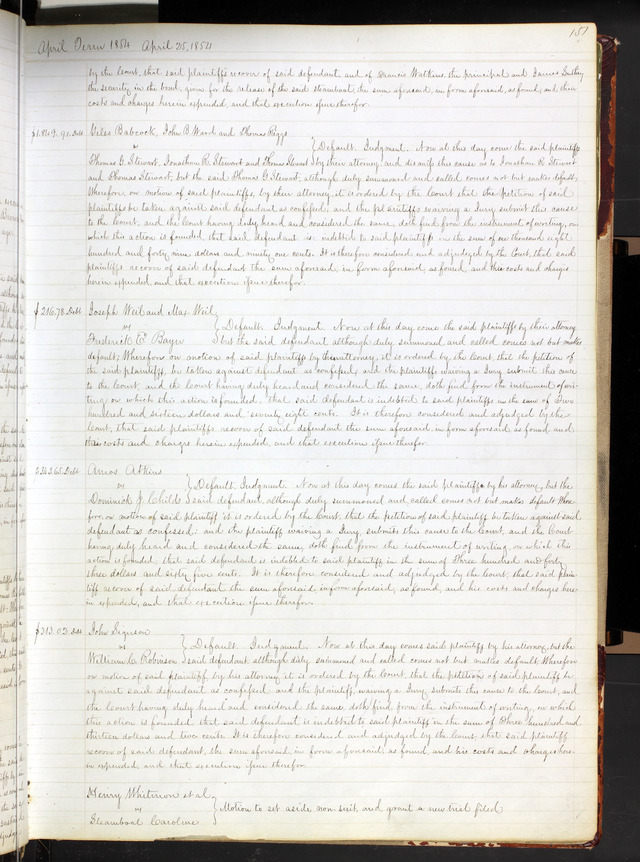 April Term 1854 April 25, 1854
151
by the Court, that said plaintiffs recover of said defendant, and of Francis Watkins, the principal and James
the security in the bond, given for the release of the said steamboat, the sum aforesaid, in form aforesaid, as found, and their
costs and charges herein expended, and that execution issue therefor.
$1.849.91. Debt Babcock, John B. Ward and Thomas
vs } Default. Judgment. Now at this day come the said plaintiffs
Thomas G. Stewart, Jonathan R. Stewart and Thomas Stewart } by their attorney, and dismiss this cause as to Jonathan R. Stewart
and Thomas Stewart, but the said Thomas G. Stewart, although duly summoned and called comes not but makes default;
Wherefore on motion of said plaintiffs, by their attorney it is ordered by the Court that the petition of said
plaintiffs be taken against said defendant as confessed; and the plaintiffs waiving a Jury, submit this cause
to the Court, and the Court having duly heard and considered the same, doth find from the instrument of writing, on
which this action is founded, that said defendant is indebted to said plaintiffs in the sum of one thousand eight
hundred and forty nine dollars and ninety one cents. It is therefore considered and adjudged by the Court, that said
plaintiffs recover of said defendant the sum aforesaid, in form aforesaid, as found, and their costs and charges
herein expended, and that execution issue therefor.
$216.78 Debt Joseph Weil and Max Weil
vs } Default. Judgment. Now at this day come the said plaintiffs by their attorney
Frederick E. Bayer } but the said defendant although duly summoned and called comes not but makes
default; Wherefore on motion of said plaintiffs by their attorney, it is ordered by the Court, that the petition of
the said plaintiffs, be taken against defendant as confessed, and the plaintiffs waiving a Jury submit this cause
to the Court, and the Court having duly heard and considered the same, doth find from the instrument of wri-
ting, on which this action is founded, that said defendant is indebted to said plaintiffs in the sum of Two
hundred and sixteen dollars and seventy eight cents. It is therefore considered and adjudged by the
Court, that said plaintiffs recover of said defendant the sum aforesaid, in form aforesaid, as found, and
their costs and charges herein expended, and that execution issue therefor.
$343.65 Debt Amos Atkins
vs } Default. Judgment. Now at this day comes the said plaintiff by his attorney, but the
Dominick J. Childs } said defendant, although duly summoned and called comes not but makes default Where
for, on motion of said plaintiff it is ordered by the Court, that the petition of said plaintiff be taken against said
defendant as confessed; and the plaintiff waiving a Jury, submits this cause to the Court, and the Court
having duly heard and considered the same, doth find from the instrument of writing, on which this
action is founded, that said defendant is indebted to said plaintiff in the sum of Three hundred and forty
three dollars and sixty five cents. It is therefore considered and adjudged by the Court, that said plain-
tiff recover of said defendant the sum aforesaid, in form aforesaid, as found, and his costs and charges here
in expended, and that execution issue therefor.
$313.02 Debt John Ferguson
vs } Default. Judgment. Now at this day comes said plaintiff by his attorney, but the
William C. Robinson } said defendant although duly summoned and called comes not but makes default. Wherefore
on motion of said plaintiff by his attorney it is ordered by the Court, that the petition of said plaintiff be
against said defendant as confessed, and the plaintiff, waiving a Jury, submits this cause to the Court, and
the Court having duly heard and considered the same, doth find, from the instrument of writing, on which
this action is founded that said defendant is indebted to said plaintiff in the sum of Three hundred and
thirteen dollars and two cents. It is therefore considered and adjudged by the Court, that said plaintiff
recover of said defendant, the sum aforesaid, in form aforesaid, as found, and his costs and charges here-
in expended, and that execution issue therefor.
Henry Whitmon et al
vs } Motion to set aside non suit, and grant a new trial filed
Steamboat Caroline